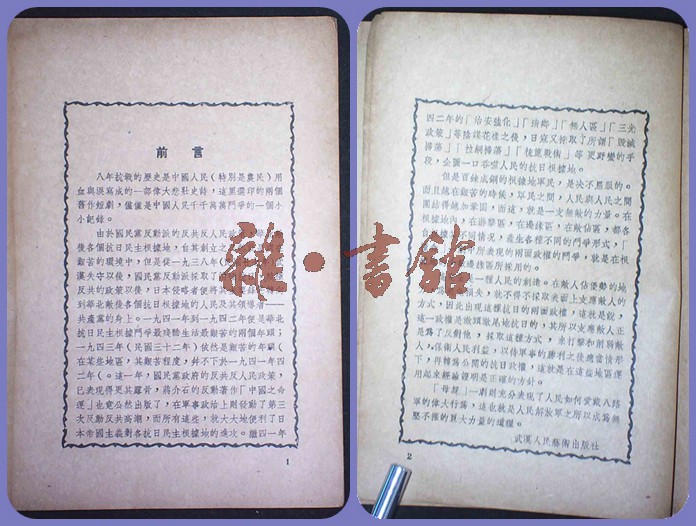 前言
八年抗戰的歷史是中國人民(特別是農民)用
血與淚寫成的一部偉大悲壯史詩,這里選印的兩個
舊作短劇,僅僅是中國人民千千萬萬鬥爭的一個小
小記錄。
由於國民黨反動派的反共反人民政
後各個抗日民主根據地,自其創立之
艱苦的環境中,但是從一九三八年
漢失守以後,國民黨反動派採取了
反共的政策以後,日本侵略者便將其
到華北敵後各個抗日根據地的人民及其領導者——
共產黨的身上。一九四一年到一九四二年便是華北
抗日民主根據地鬥爭最殘酷生活最艱苦的兩個年頭;
一九四三年(民國三十二年)依然是艱苦的年頭(
在某些地區,其艱苦程度,并不下於一九四一年四
二年(。這一年,國民黨政府的反共反人民政策,
已表現得更其露骨,蔣介石的反動著作「中國之命
運」也竟公然出版了,在軍事政治上則發動了第三
次反動反共高潮,而所有這些,就大大地便利了日
本帝國主義對各抗日民主根據地的進攻。繼四一年
1
四二年的「治安強化」「清鄉」「無人區」「三光
政策」等陰謀花樣之後,日寇又採取了所謂「毀滅
掃蕩」「拉網掃蕩」「梳篦戰術」等更野蠻的手
段,企圖一口吞噬人民的抗日根據地。
但是百鍊成鋼的根據地軍民,是決不屈服的。
而且越在艱苦的時候,軍民之間,人民與人民之間
團結得越加鞏固,而這,就是一支無敵的力量。在
根據地內,在游擊區,在邊緣區,在敵佔區,都各
不同情況,產生各種不同的鬥爭形式,「
所表現的兩面政權的鬥爭,就是在根
邊緣區所採用的。
一種人民的創造。在敵人佔優勢的地
損失,就不得不採取表面上支應敵人的
方式,因此出現了這樣的抗日的兩面政權,這就是說,
這一政權是徹頭徹尾地抗日的,其所以支應敵人正
是為了反對他,採取這種方式,來打擊和削弱敵
人,保衛人民利益,以待軍事的勝利之後適當情形
下,再轉為公開的抗日政權,這就是在這些地區運
用起來經驗證明是正確的方針。
「母親」一劇則充分表現了人民如何愛戴八路
軍的偉大行為,這也就是人民解放軍之所以成為無
堅不摧的巨大力量的道理。
武漢人民藝術出版社
2
雜·書館